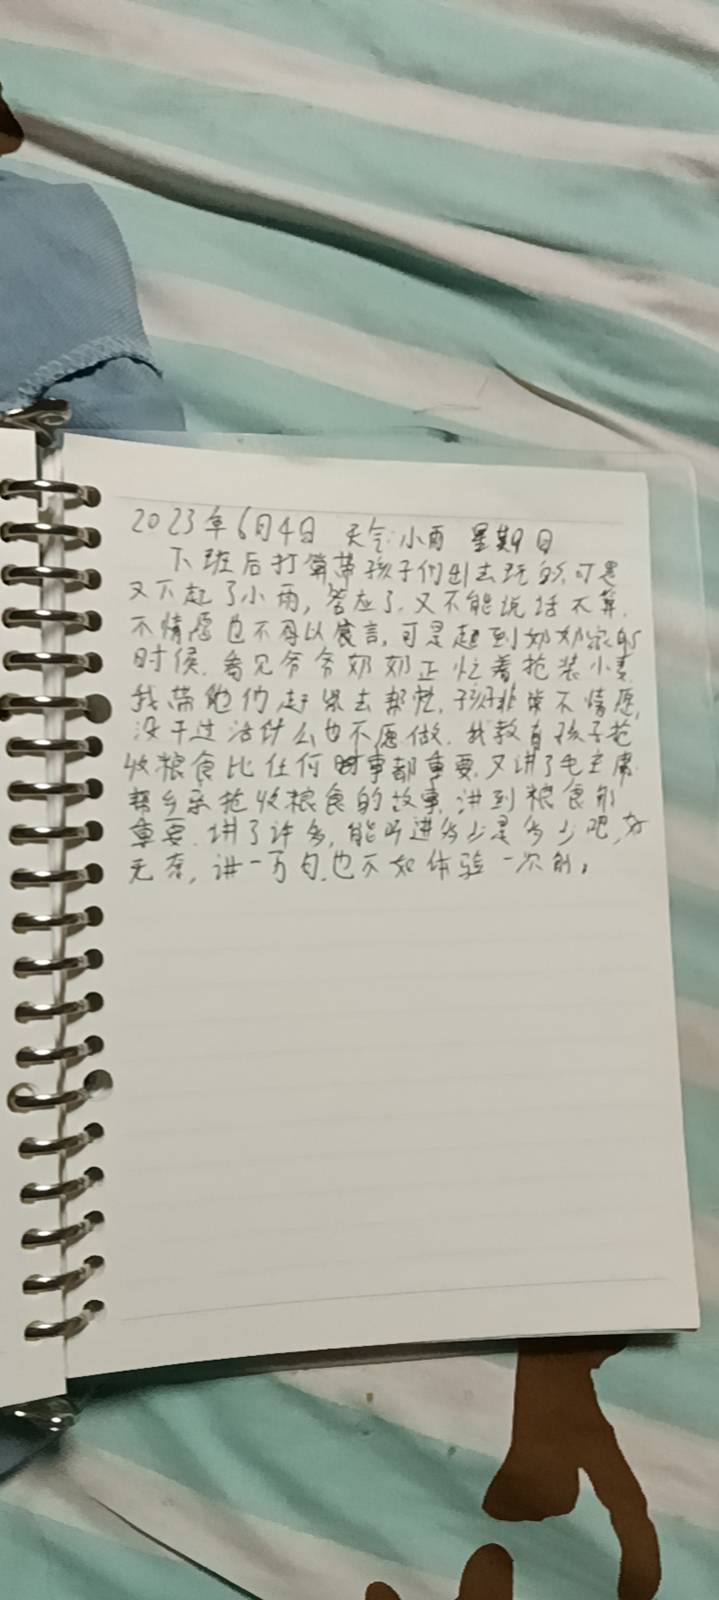 2023年6月4日 天气:小雨 星期日
下班后打算带孩子们出去玩的,可是
又下起了小雨,答应了,又不能说话不算,
不情愿也不可以食言,可是赶到奶奶家的
时候,看见爷爷奶奶正忙着抢装小麦
我带他们赶紧去帮忙,孩子非常不情愿,
没干过活什么也不愿做,我教育孩子抢
收粮食比任何事都重要,又讲了毛主席
帮乡亲抢收粮食的故事,讲到粮食的
重要,讲了许多,能听进多少是多少吧,
无奈,讲一万句,也不如体验一次的。